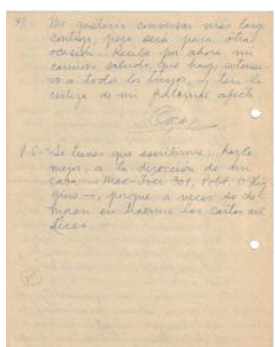 4)
Me gustaría conversar más largo
contigo, pero será para otra
ocasión. Recibe por ahora mi
cariñoso saludo, que hago extensi-
vo a todos los tuyos, y ten la
certeza de mi fraternal afecto.
P.S.- Si tienes que escribirme, hazlo,
mejor, a la dirección de mi
casa — Mac-Iver 301, Pobl. O'Hig
gins —, porque a veces se de-
moran en traerme las cartas del
Liceo.